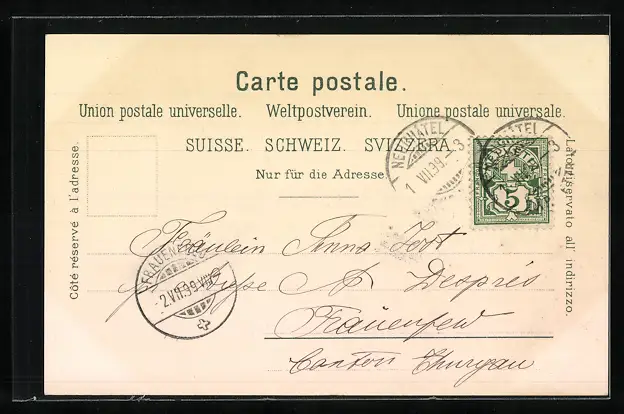 Carte postale.
Union postale universelle. Weltpostverein. Unione postale universale.
SUISSE. SCHWEIZ. SVIZZERA
Nur für die Adresse
Côté réservé à l'adresse.
Lato riservato all' indirizzo.
NEUCHATEL
1 VII.99.-8
5
FRAUENFELD
2.VII.99.VIII
Fräulein Anna
Desprès
Frauenfeld
Canton Thurgau